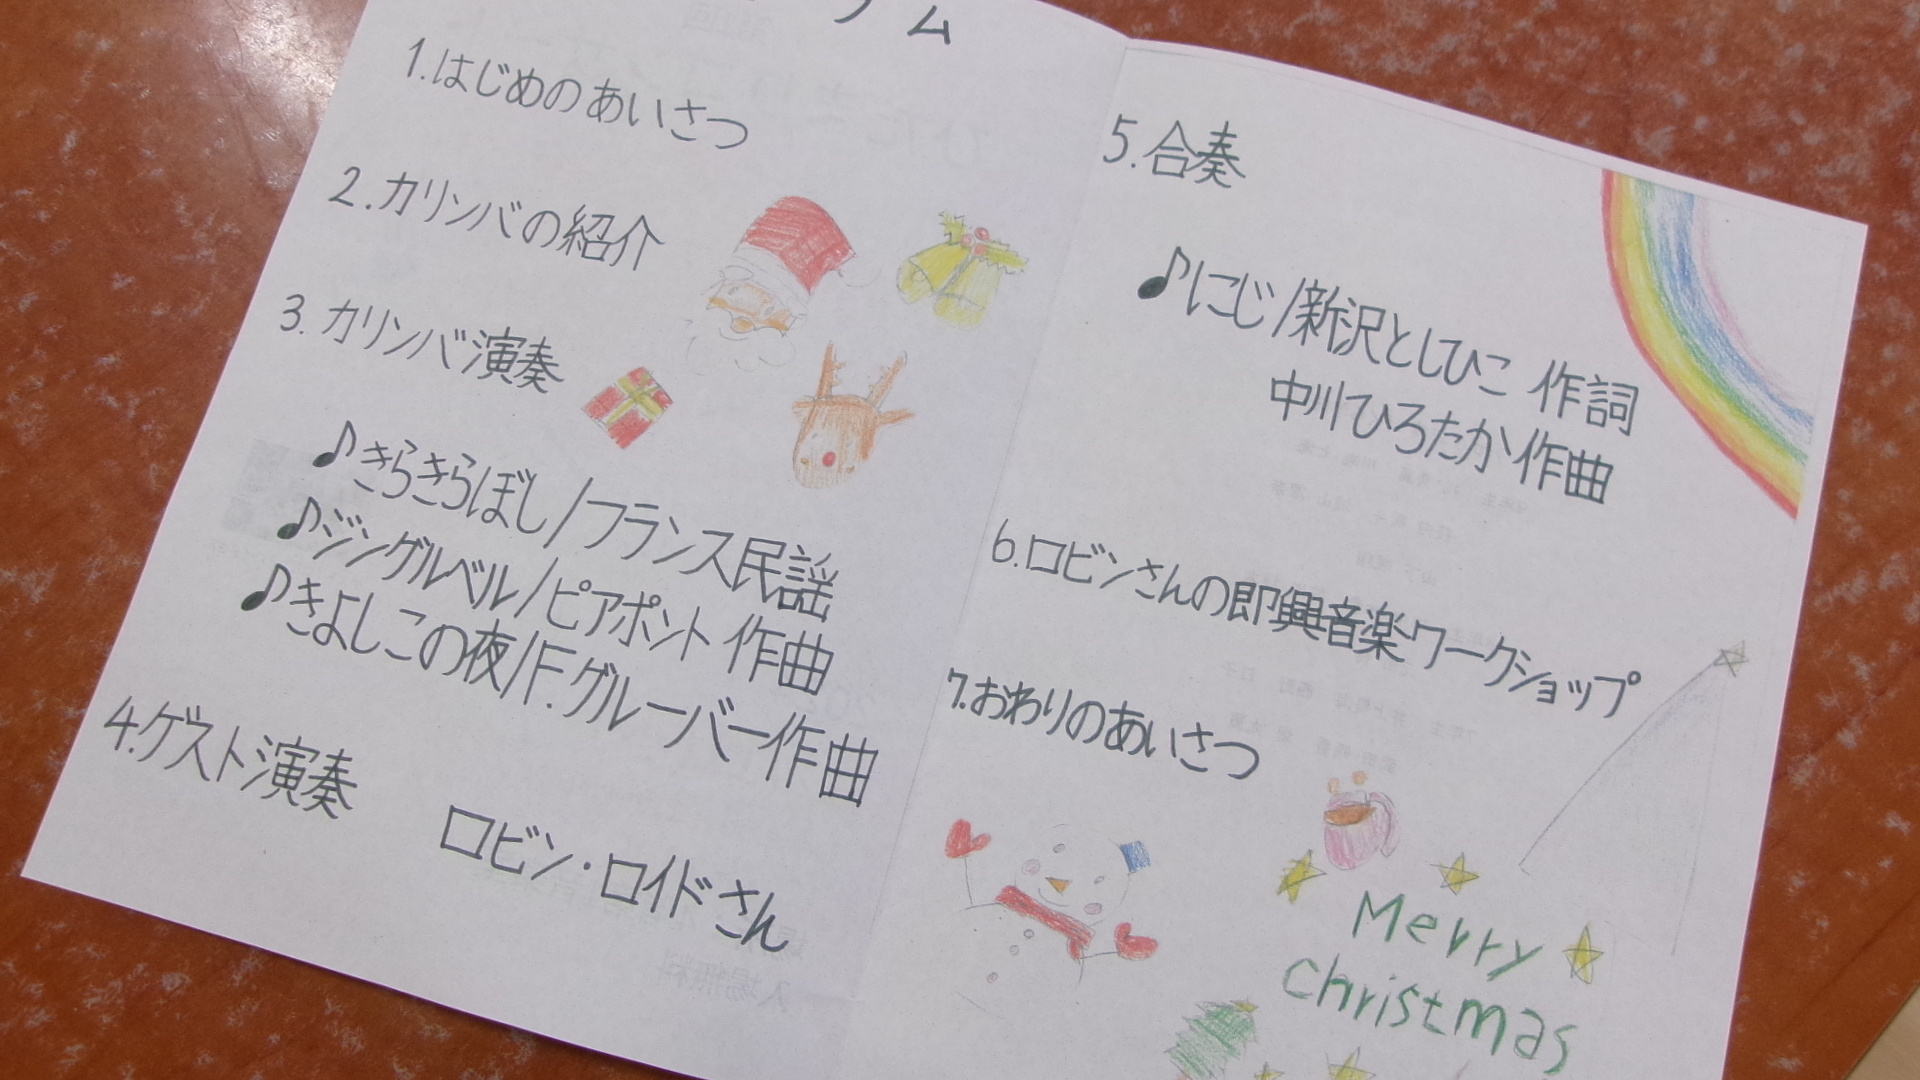 ラム
1.はじめのあいさつ
2.カリンバの紹介
3.カリンバ演奏
♪きらきらぼし/フランス民謡
♪ジングルベル/ピアポント 作曲
♪きよしこの夜/F.グルーバー作曲
4.ゲスト演奏
ロビン・ロイドさん
5.合奏
♪にじ/新沢としひこ 作詞
中川ひろたか作曲
6.ロビンさんの即興音楽ワークショップ
7.おわりのあいさつ
Merry
christmas
入場無料